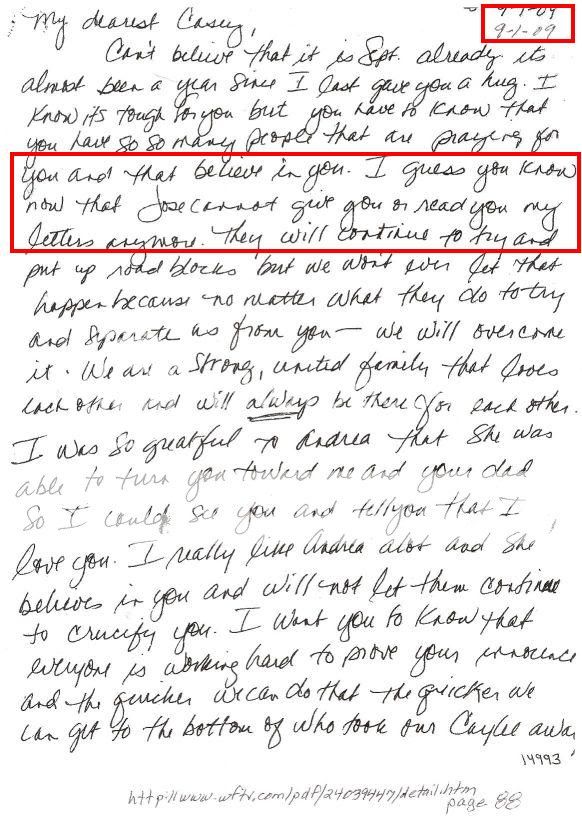 9-1-09
9-1-09
My dearest Casey,
Can't believe that it is Sept. already its
almost been a year since I last gave you a hug. I
know it's tough for you but you have to know that
you have so so many people that are praying for
you and that believe in you. I guess you know
now that Jose cannot give you or read you my
letters anymore. They will continue to try and
put up road blocks but we won't ever let that
happen because no matter what they do to try
and separate us from you — we will overcome
it. We are a strong, united family that loves
each other and will always be there for each other.
I was so greatful to Andrea that she was
able to turn you toward me and your dad
so I could see you and tell you that I
love you. I really like Andrea alot and she
believes in you and will not let them continue
to crucify you. I want you to know that
everyone is working hard to prove your innocence
and the quicker we can do that the quicker we
can get to the bottom of who took our Caylee away
14993
http://www.wftv.com/pdf/24039447/detail.htm
page 88